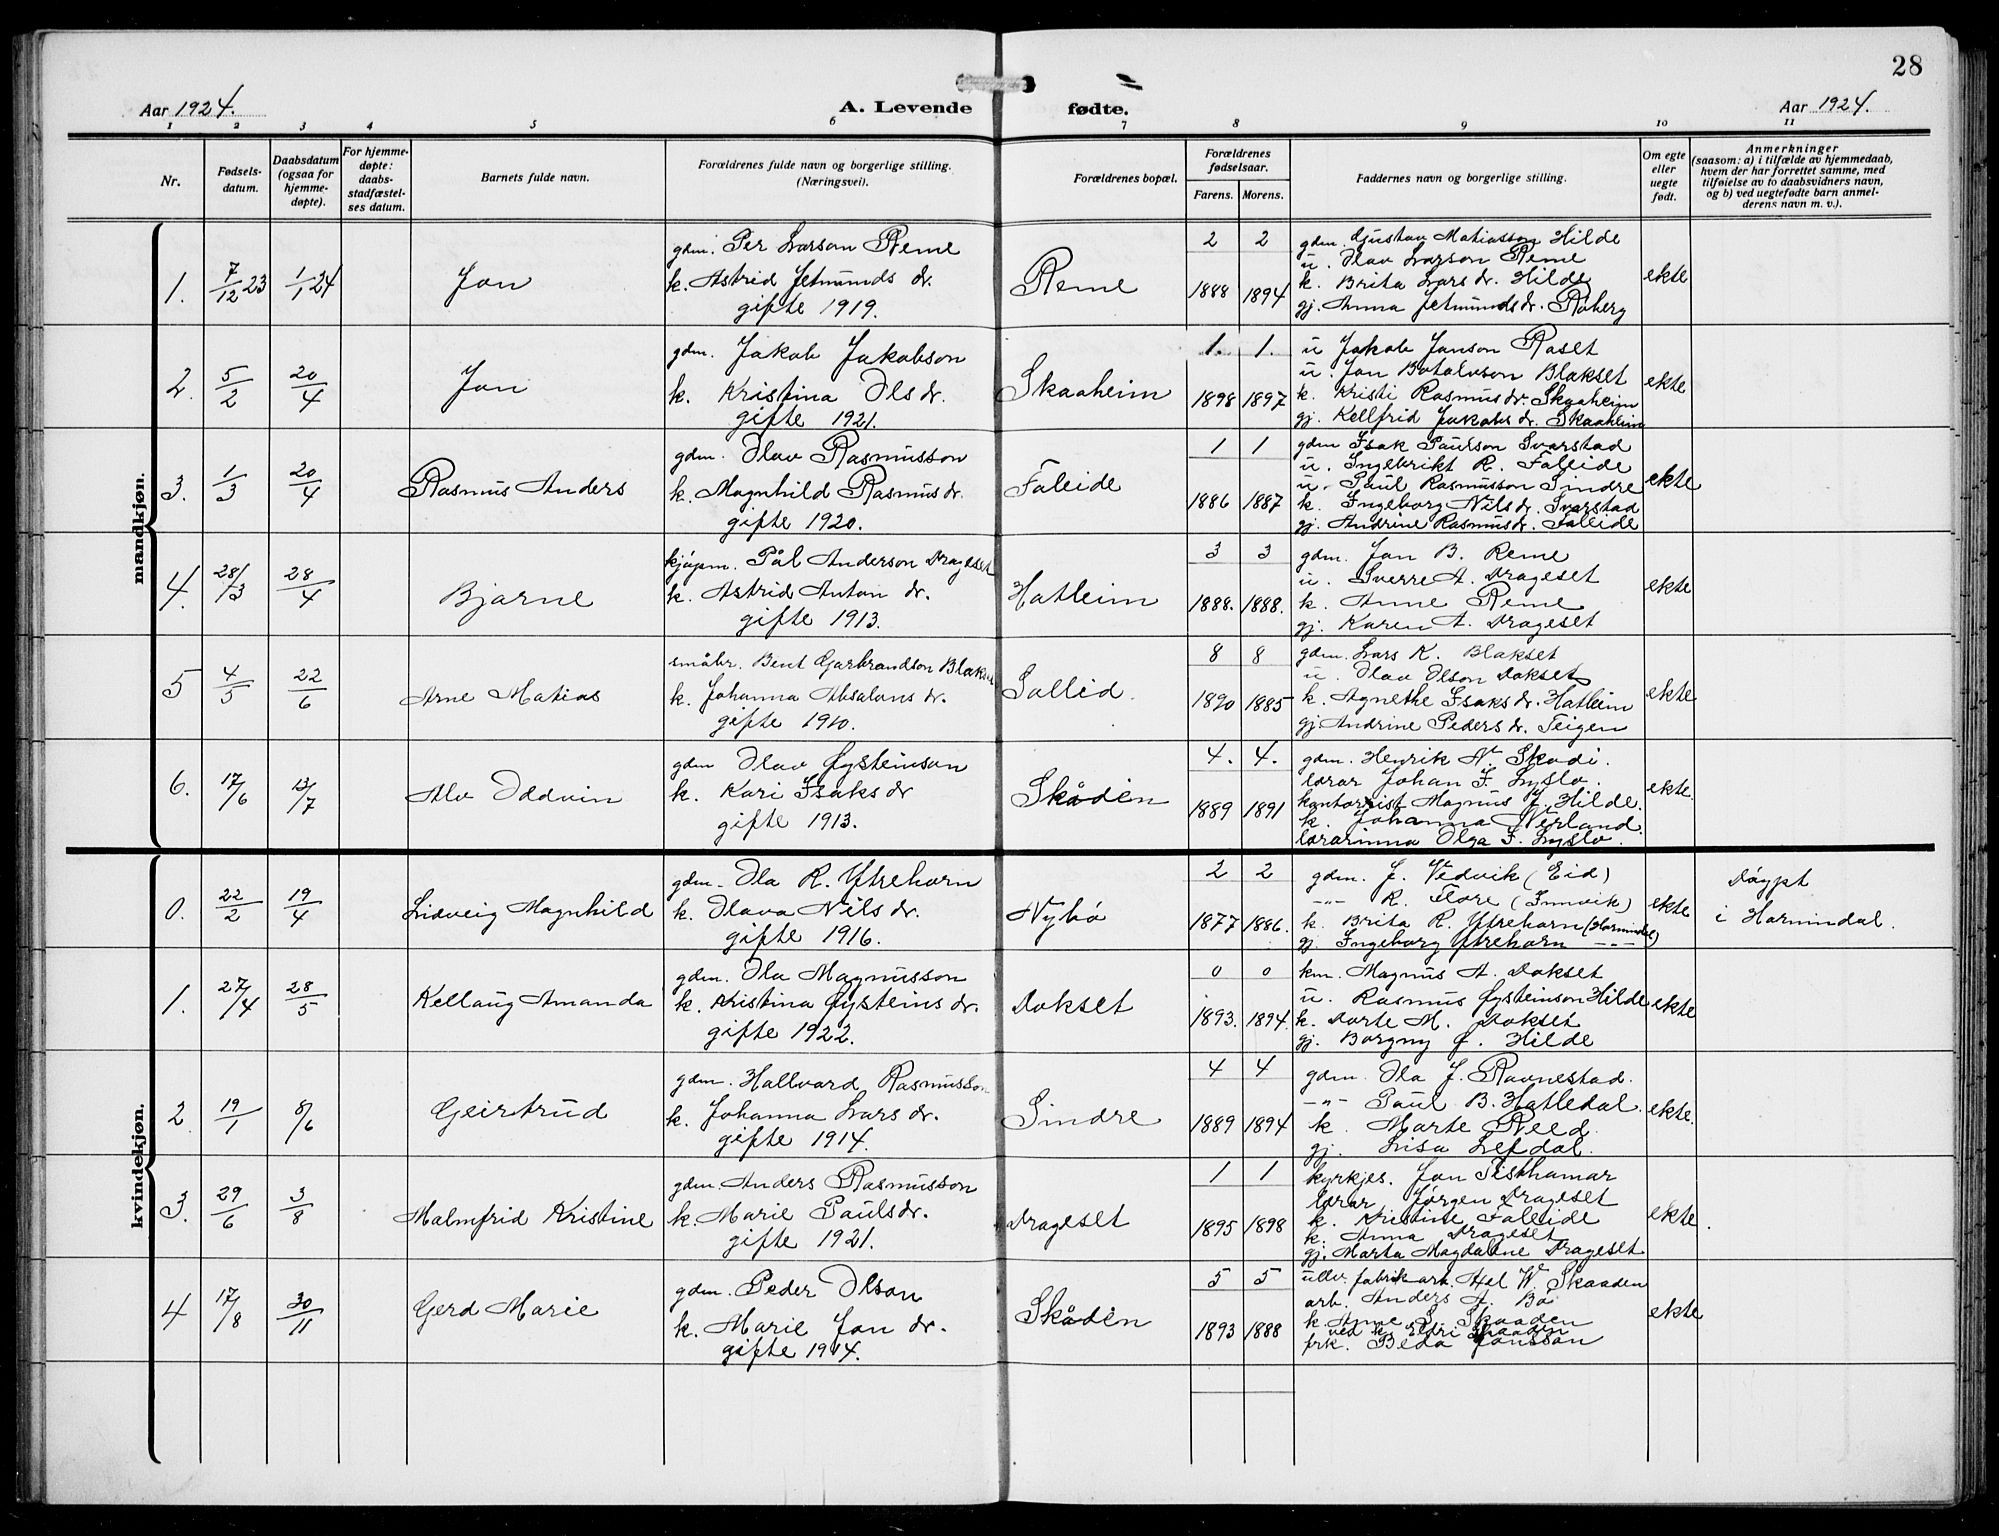 28
Aar 1924. A. Levende fødte. Aar 1924.
1 2 3 4 5 6 7 8 9 10 11
Nr.
Fødsels-
datum.
Daabsdatum
(ogsaa for
hjemme-
døpte).
For hjemme-
døpte:
daabs-
stadfæstel-
ses datum.
Barnets fulde navn.
Forældrenes fulde navn og borgerlige stilling.
(Næringsvei).
Forældrenes bopæl.
Forældrenes
fødselsaar.
Farens. Morens.
Faddernes navn og borgerlige stilling.
Om egte
eller
uegte
født.
Anmerkninger
(saasom: a) i tilfælde av hjemmedaab,
hvem der har forrettet samme, med
tilføielse av to daabsvidners navn,
og b) ved uegtefødte barn anmel-
derens navn m. v.).
mandkjøn.
1. 7/12 23 1/1 24 Jon
gdm. Per Larson Reme
k. Astrid Jetmunds dr.
gifte 1919.
Reme
2 2
1888 1894
gdm. Gustav Matiasson Hilde
u. Olav Larson Reme
k. Brita Lars dr. Hilde
gj. Anna Jetmunds dr. Roberg
ekte
2. 5/2 20/4 Jon
gdm. Jakob Jakobson
k. Kristina Ols dr.
gifte 1921.
Skaaheim
1. 1.
1898 1897
u Jakob Janson Raset
u. Jon Botolvson Blakset
k. Kristi Rasmus dr. Skaaheim
gj. Kellfrid Jakobs dr. Skaaheim
ekte
3. 1/3 20/4 Rasmus Anders
gdm. Olav Rasmusson
k. Magnhild Rasmus dr.
gifte 1920.
Faleide
1 1
1886 1887
gdm Isak Paulson Svarstad
u. Ingebrikt R. Faleide
u. Paul Rasmusson Sindre
k. Ingeborg Nils dr. Svarstad
gj. Andrine Rasmus dr. Faleide
ekte
4. 28/3 28/4 Bjarne
kjøpm. Pål Anderson Drageset
k. Astrid Anton dr.
gifte 1913.
Hatleim
3 3
1888. 1888.
gdm. Jon B. Reme
u. Sverre A. Drageset
k. Anne Reme
gj. Karen A. Drageset
ekte
5 4/5 22/6 Arne Matias
småbr. Bent Gerbrandson Blakset
k. Johanna Absalons dr.
gifte 1910.
Sollid.
8 8
1890 1885
gdm. Lars K. Blakset
u. Olav Olson Dokset
k. Agnethe Isaks dr. Hatleim
gj Andrine Peders dr. Teigen
ekte
6. 17/6 13/7 Alv Oddvin
gdm Olav Øysteinson
k. Kari Isaks dr
gifte 1913.
Skåden
4. 4.
1889 1891
gdm. Henrik N. Skodi.
lærar Johan F. Lyslo.
kontorist Magnus J. Hilde.
k. Johanna Nerland.
lærarinna Olga F. Lyslo.
ekte.
kvindekjøn.
0. 22/2 19/4 Lidveig Magnhild
gdm. Ola R. Ytrehorn
k. Olava Nils dr.
gifte 1916.
Nybø
2 2
1877 1886.
gdm. J. Vedvik (Eid)
-"- R. Flore (Innvik)
k. Brita R. Ytrehorn (Hornindal)
gj. Ingeborg Ytrehorn -"-
ekte
Døypt
i Hornindal.
1. 27/4 28/5 Kellaug Amanda
gdm. Ola Magnusson
k. Kristina Øysteins dr.
gifte 1922.
Dokset
0 0
1893. 1894.
km. Magnus A. Dokset
u. Rasmus Øysteinson Hilde
k. Dorte M. Dokset
gj. Borgny J. Hilde
ekte
2 19/1 8/6 Geirtrud
gdm. Hallvard Rasmusson
k. Johanna Lars dr.
gifte 1914.
Sindre
4 4
1889 1894
gdm. Ola J. Ravnestad.
-"- Paul B. Hatledal.
k. Marte Reed
gj. Lisa Lefdal.
ekte.
3. 29/6 3/8 Malmfrid Kristine
gdm. Anders Rasmusson
k. Marie Pauls dr.
gifte 1921.
Drageset
1 1
1895 1898
kyrkjes. Jon Tisthamar
lærar Jørgen Drageset
k. Kristine Faleide
k. Anna Drageset
gj. Marta Magdalene Drageset
ekte.
4 17/8 30/11 Gerd Marie
gdm. Peder Olson
k. Marie Jon dr.
gifte 1914.
Skåden
5 5
1893 1888
ullv. fabrik arb. Hel W. Skaaden
arb. Anders A. Bø
k. Anne S. Skaaden
ved k. Eldri Skaaden
frk. Beda Jonsson
ekte